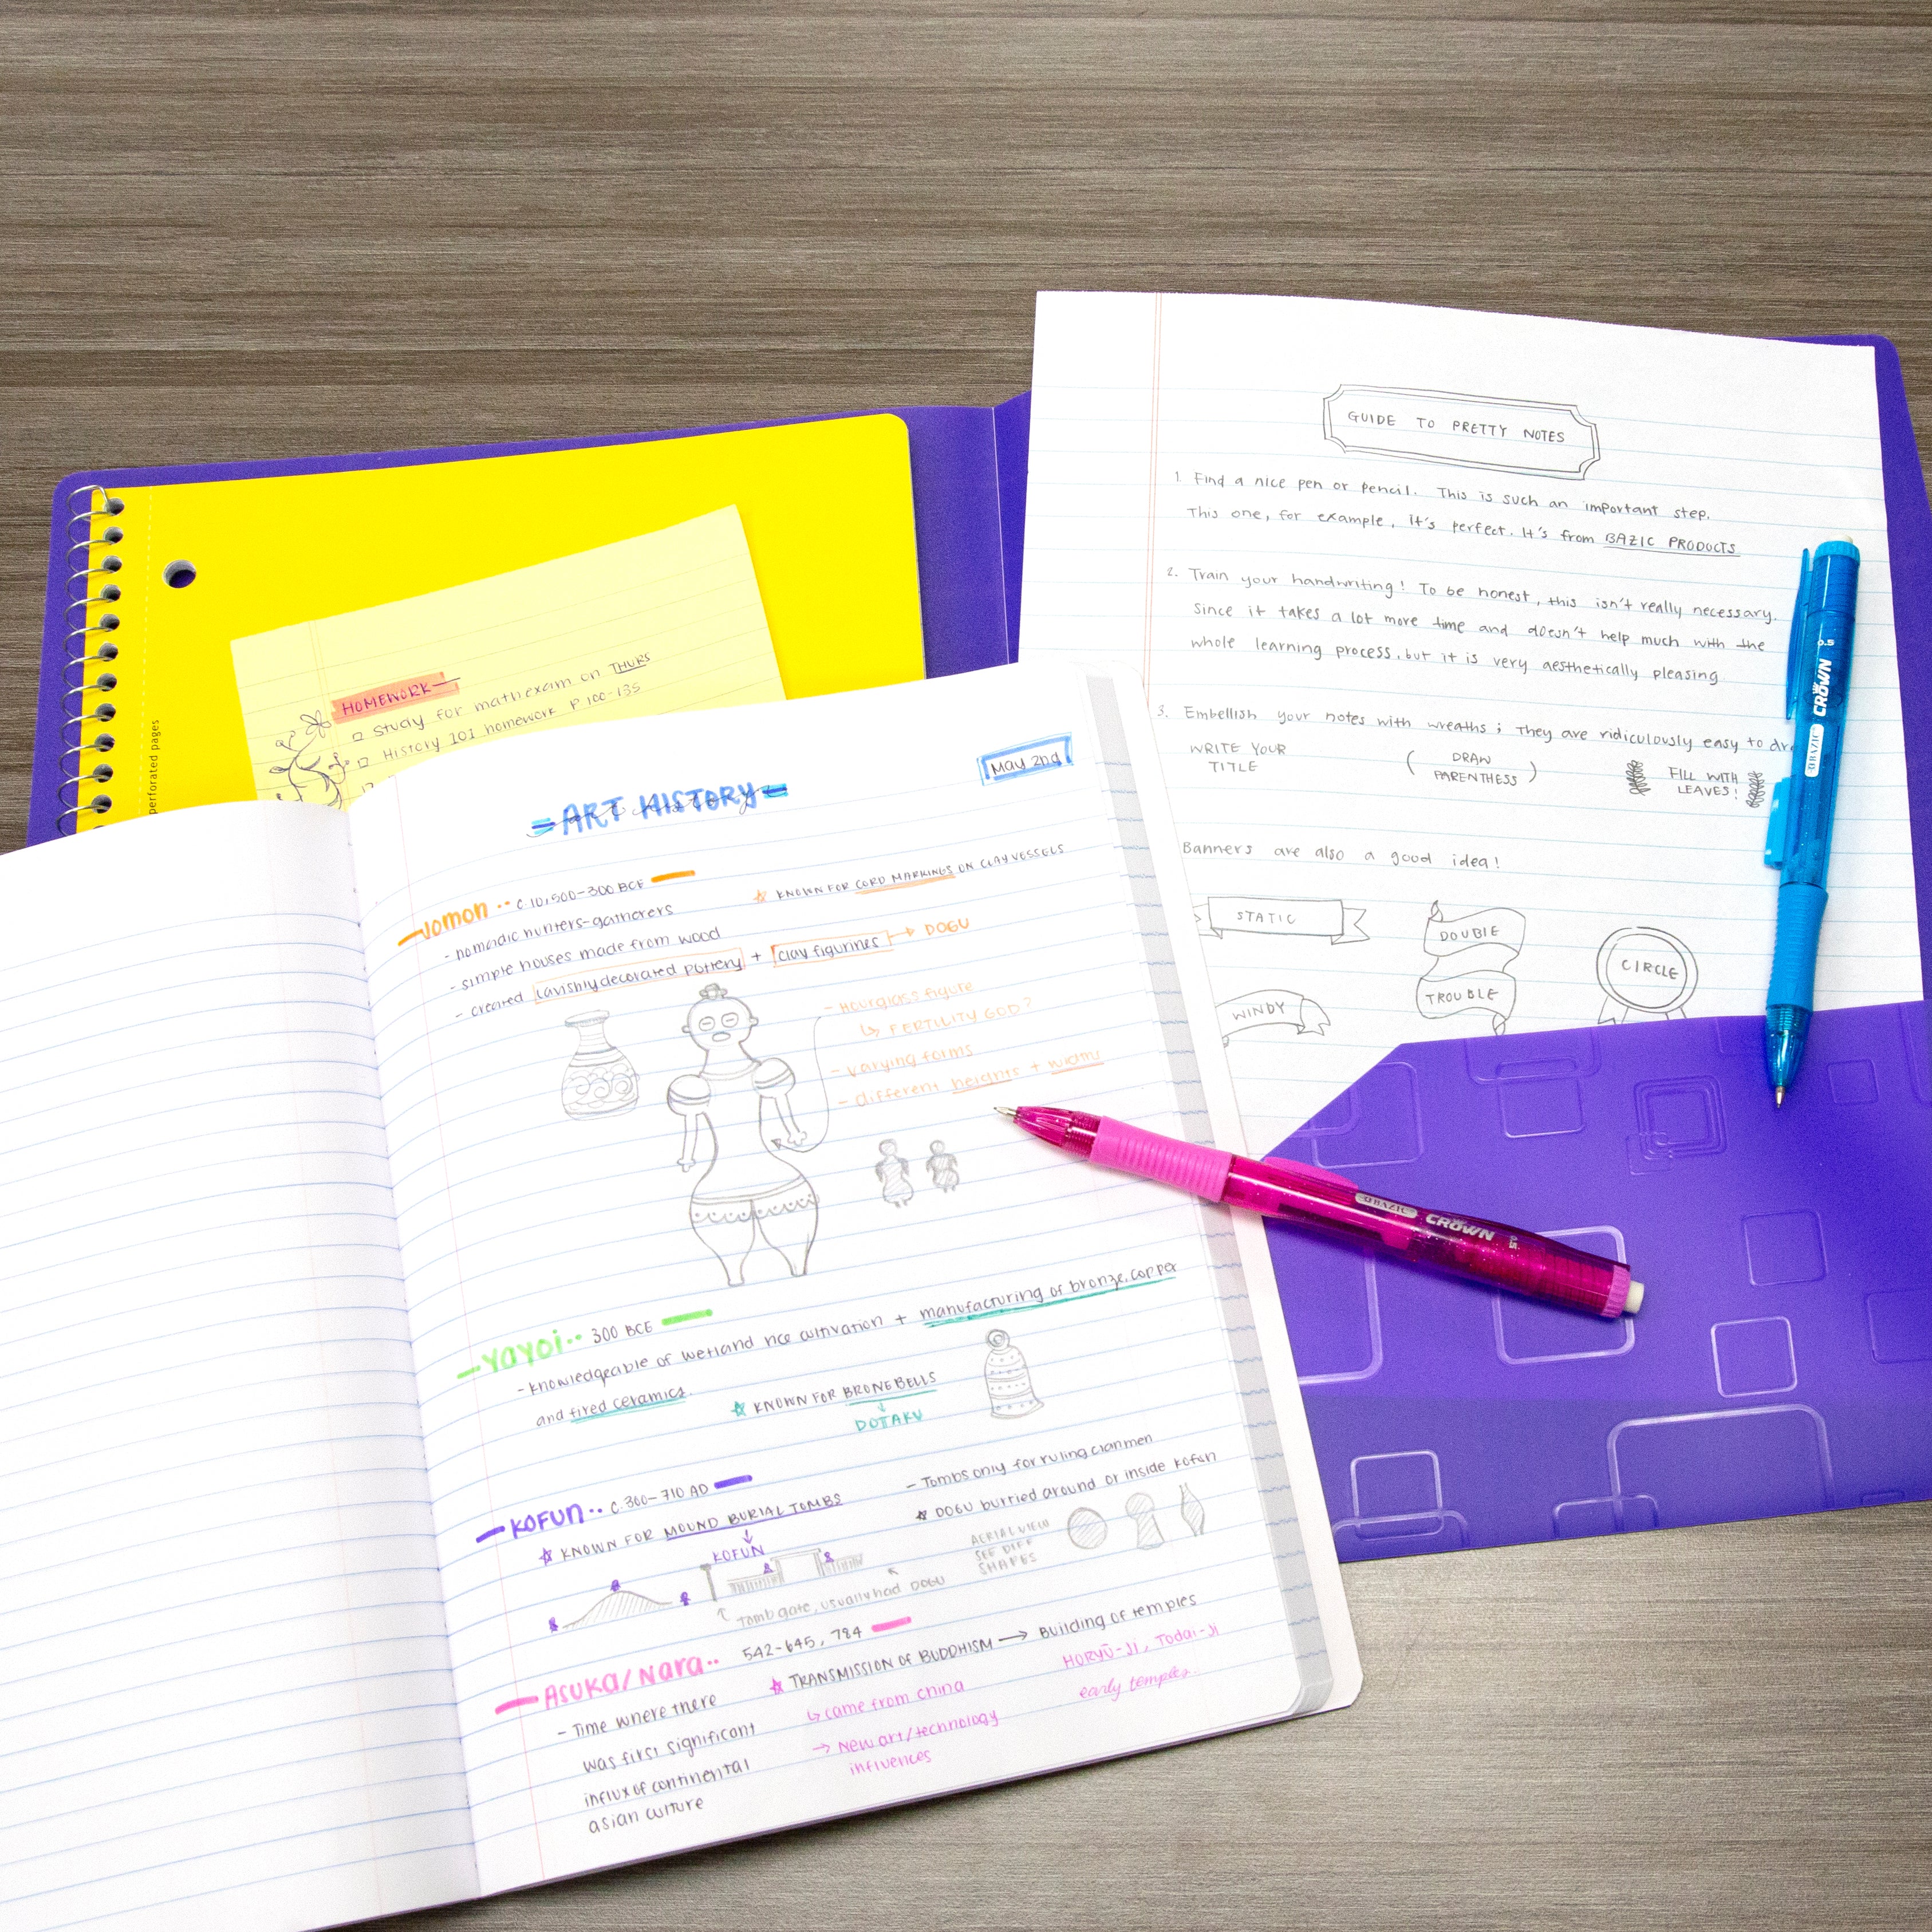 perforated pages
HOMEWORK
Study for math exam on THURS
History 101 homework P 100-135
ART HISTORY
art history
May 2nd
Jomon .. c. 10,500-300 BCE
- nomadic hunters-gatherers
- simple houses made from wood
- created lavishly decorated pottery + clay figurines → DOGU
☆ KNOWN FOR CORD MARKINGS ON CLAY VESSELS
- Hourglass figure
↳ FERTILITY GOD?
- varying forms
- different heights + widths
Yayoi .. 300 BCE
- knowledgeable of wetland rice cultivation + manufacturing of bronze, copper
and fired ceramics.
☆ KNOWN FOR BRONE BELLS
↓
DOTAKU
KOFUN .. c. 300-710 AD
☆ KNOWN FOR MOUND BURIAL TOMBS
↓
KOFUN
- Tombs only for ruling clanmen
☆ DOGU burried around or inside kofun
AERIAL VIEW
SEE DIFF
SHAPES
Tomb gate, usually had DOGU
Asuka/Nara .. 542-645, 784
- Time where there
was first significant
influx of continental
asian culture
☆ TRANSMISSION OF BUDDHISM → Building of temples
↳ came from china
→ New art/technology
influences
HORYŪ-JI, Todai-Ji
early temples
GUIDE TO PRETTY NOTES
1. Find a nice pen or pencil. This is such an important step.
This one, for example, it's perfect. It's from BAZIC PRODUCTS
2. Train your handwriting! To be honest, this isn't really necessary.
Since it takes a lot more time and doesn't help much with the
whole learning process, but it is very aesthetically pleasing.
3. Embellish your notes with wreaths; They are ridiculously easy to
WRITE YOUR
TITLE
( DRAW
PARENTHESS )
FILL WITH
LEAVES!
Banners are also a good idea!
STATIC
DOUBLE
TROUBLE
CIRCLE
WINDY
BAZIC CROWN 0.5
BAZIC CROWN 0.5